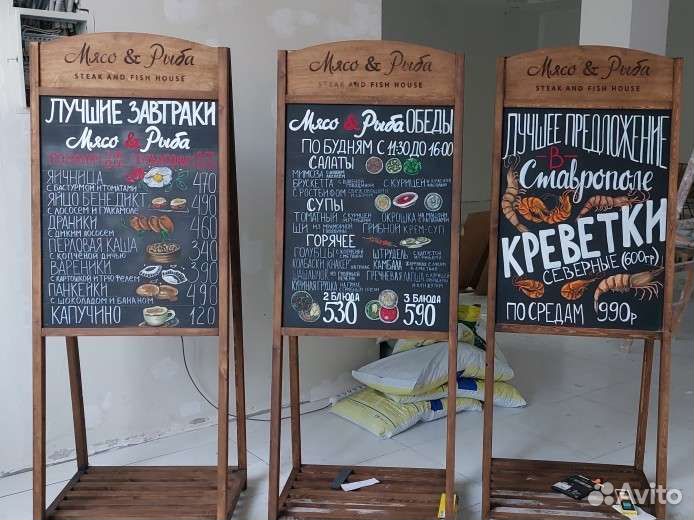 Мясо & Рыба
STEAK AND FISH HOUSE
ЛУЧШИЕ ЗАВТРАКИ
Мясо & Рыба
ЯИЧНИЦА 470
С БАСТУРМОЙ И ТОМАТАМИ
ЯЙЦО БЕНЕДИКТ 490
С ЛОСОСЕМ И ГУАКАМОЛЕ
ДРАНИКИ 460
С ДИКИМ ЛОСОСЕМ
ПЕРЛОВАЯ КАША 340
С КОПЧЁНОЙ ДИЧЬЮ
ВАРЕНИКИ 390
С КАРТОШКОЙ И ТРЮФЕЛЕМ
ПАНКЕЙКИ 490
С ШОКОЛАДОМ И БАНАНОМ
КАПУЧИНО 120
Мясо & Рыба
STEAK AND FISH HOUSE
Мясо & Рыба ОБЕДЫ
ПО БУДНЯМ С 11:30 ДО 16:00
САЛАТЫ
МИМОЗА
БРУСКЕТТА С КУРИЦЕЙ
С РОСТБИФОМ
СУПЫ
ТОМАТНЫЙ ОКРОШКА
ЩИ ГРИБНОЙ КРЕМ-СУП
ГОРЯЧЕЕ
ГОЛУБЦЫ ШТРУДЕЛЬ
КОЛБАСКИ КАМБАЛА
КУРИНАЯ ГРУДКА
2 БЛЮДА 3 БЛЮДА
530 590
Мясо & Рыба
STEAK AND FISH HOUSE
ЛУЧШЕЕ ПРЕДЛОЖЕНИЕ
В
Ставрополе
КРЕВЕТКИ
СЕВЕРНЫЕ (600гр)
ПО СРЕДАМ 990р
Avito